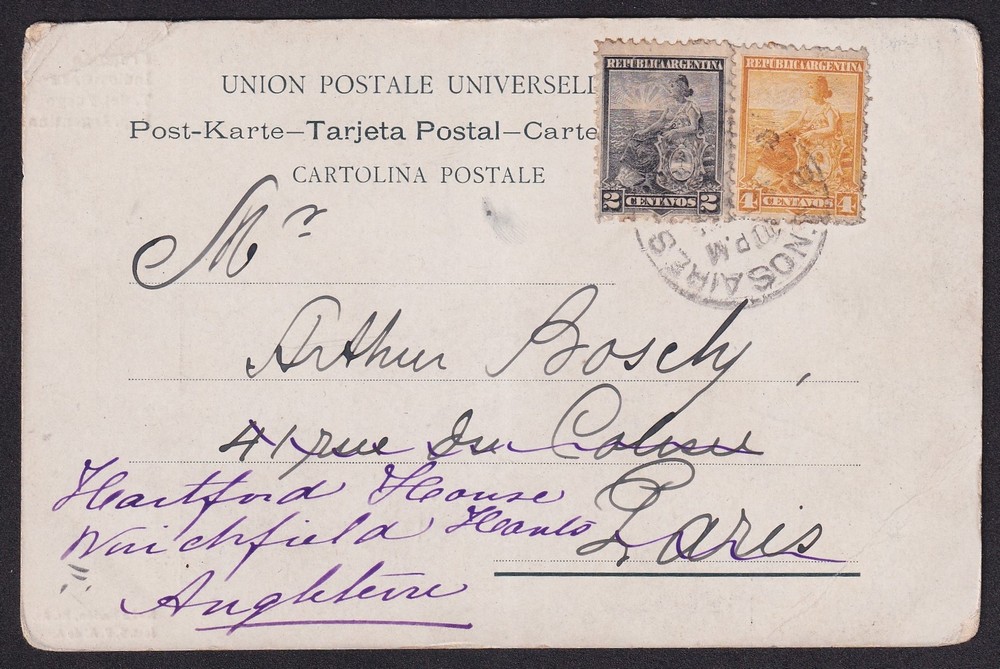 UNION POSTALE UNIVERSELL
Post-Karte–Tarjeta Postal–Carte
CARTOLINA POSTALE
REPUBLICA ARGENTINA
2 CENTAVOS 2
REPUBLICA ARGENTINA
4 CENTAVOS 4
NOSAIRES
PM
Mr
Arthur Bosch,
41 rue du Colisée
Paris
Hartford House
Winchfield Hants
Angleterre